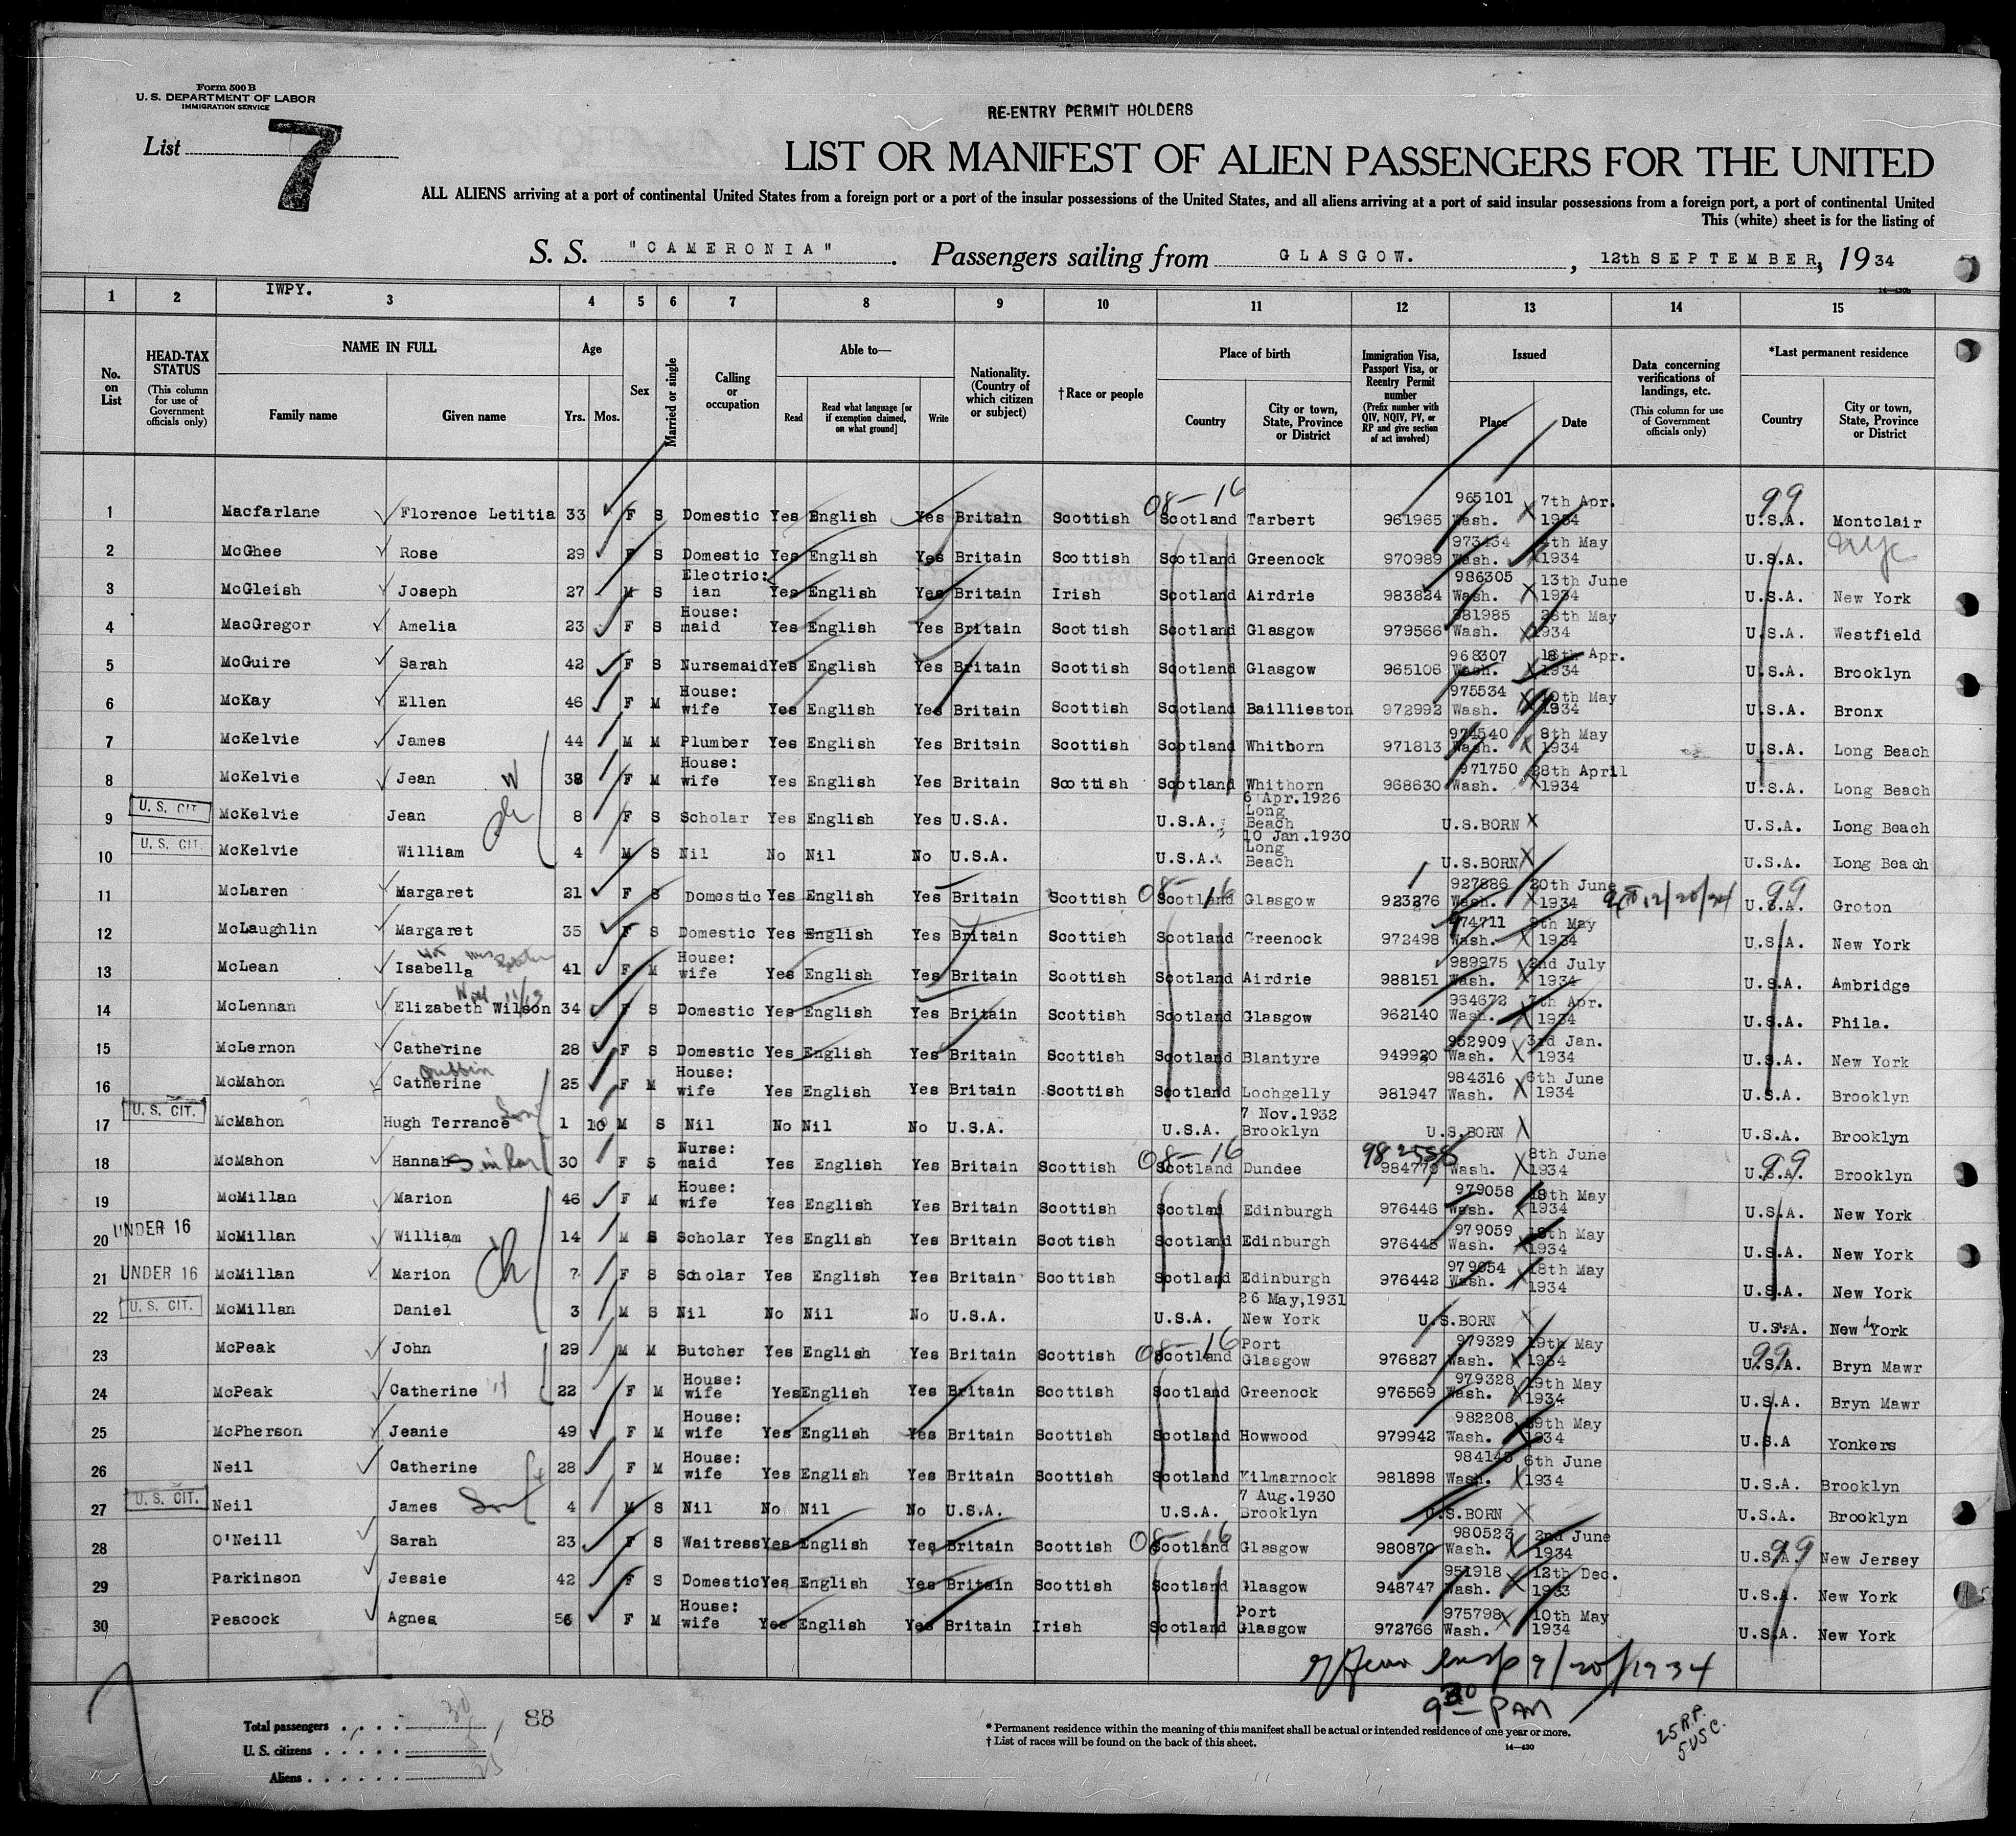 Form 500 B
U. S. DEPARTMENT OF LABOR
IMMIGRATION SERVICE
RE-ENTRY PERMIT HOLDERS
List 7
LIST OR MANIFEST OF ALIEN PASSENGERS FOR THE UNITED
ALL ALIENS arriving at a port of continental United States from a foreign port or a port of the insular possessions of the United States, and all aliens arriving at a port of said insular possessions from a foreign port, a port of continental United
This (white) sheet is for the listing of
S. S. "CAMERONIA". Passengers sailing from GLASGOW. , 12th SEPTEMBER, 1934
14—430b
IWPY.
1 2 3 4 5 6 7 8 9 10 11 12 13 14 15
No. on List
HEAD-TAX STATUS (This column for use of Government officials only)
NAME IN FULL Family name Given name
Age Yrs. Mos.
Sex
Married or single
Calling or occupation
Able to— Read Read what language [or if exemption claimed, on what ground] Write
Nationality. (Country of which citizen or subject)
†Race or people
Place of birth Country City or town, State, Province or District
Immigration Visa, Passport Visa, or Reentry Permit number (Prefix number with QIV, NQIV, PV, or RP and give section of act involved)
Issued Place Date
Data concerning verifications of landings, etc. (This column for use of Government officials only)
*Last permanent residence Country City or town, State, Province or District
1 Macfarlane Florence Letitia 33 F S Domestic Yes English Yes Britain Scottish 08-16 Scotland Tarbert 961965 965101 Wash. 7th Apr. 1934 99 U.S.A. Montclair
2 McGhee Rose 29 F S Domestic Yes English Yes Britain Scottish Scotland Greenock 970989 973434 Wash. 4th May 1934 U.S.A. NYC
3 McGleish Joseph 27 M S Electric: ian Yes English Yes Britain Irish Scotland Airdrie 983824 986305 Wash. 13th June 1934 U.S.A. New York
4 MacGregor Amelia 23 F S House: maid Yes English Yes Britain Scottish Scotland Glasgow 979566 981985 Wash. 28th May 1934 U.S.A. Westfield
5 McGuire Sarah 42 F S Nursemaid Yes English Yes Britain Scottish Scotland Glasgow 965106 968307 Wash. 18th Apr. 1934 U.S.A. Brooklyn
6 McKay Ellen 46 F M House: wife Yes English Yes Britain Scottish Scotland Baillieston 972992 975534 Wash. 10th May 1934 U.S.A. Bronx
7 McKelvie James 44 M M Plumber Yes English Yes Britain Scottish Scotland Whithorn 971813 974540 Wash. 8th May 1934 U.S.A. Long Beach
8 McKelvie Jean W 38 F M House: wife Yes English Yes Britain Scottish Scotland Whithorn 968630 971750 Wash. 28th April 1934 U.S.A. Long Beach
9 U. S. CIT. McKelvie Jean ch 8 F S Scholar Yes English Yes U.S.A. U.S.A. 6 Apr.1926 Long Beach U.S.BORN U.S.A. Long Beach
10 U. S. CIT. McKelvie William 4 M S Nil No Nil No U.S.A. U.S.A. 10 Jan.1930 Long Beach U.S.BORN U.S.A. Long Beach
11 McLaren Margaret 21 F S Domestic Yes English Yes Britain Scottish 08-16 Scotland Glasgow 923276 927886 Wash. 20th June 1934 12/20/34 99 U.S.A. Groton
12 McLaughlin Margaret 35 F S Domestic Yes English Yes Britain Scottish Scotland Greenock 972498 974711 Wash. 9th May 1934 U.S.A. New York
13 McLean Isabella 41 F M House: wife Yes English Yes Britain Scottish Scotland Airdrie 988151 989975 Wash. 2nd July 1934 U.S.A. Ambridge
14 McLennan Elizabeth Wilson 34 F S Domestic Yes English Yes Britain Scottish Scotland Glasgow 962140 964672 Wash. 7th Apr. 1934 U.S.A. Phila.
15 McLernon Catherine 28 F S Domestic Yes English Yes Britain Scottish Scotland Blantyre 949920 952909 Wash. 3rd Jan. 1934 U.S.A. New York
16 McMahon Catherine 25 F M House: wife Yes English Yes Britain Scottish Scotland Lochgelly 981947 984316 Wash. 6th June 1934 U.S.A. Brooklyn
17 U. S. CIT. McMahon Hugh Terrance Son 1 10 M S Nil No Nil No U.S.A. U.S.A. 7 Nov.1932 Brooklyn U.S.BORN U.S.A. Brooklyn
18 McMahon Hannah S in law 30 F S Nurse: maid Yes English Yes Britain Scottish 08-16 Scotland Dundee 982558 Wash. 8th June 1934 99 U.S.A. Brooklyn
19 McMillan Marion 46 F M House: wife Yes English Yes Britain Scottish Scotland Edinburgh 976446 979058 Wash. 18th May 1934 U.S.A. New York
20 UNDER 16 McMillan William 14 M S Scholar Yes English Yes Britain Scottish Scotland Edinburgh 976445 979059 Wash. 18th May 1934 U.S.A. New York
21 UNDER 16 McMillan Marion ch 7 F S Scholar Yes English Yes Britain Scottish Scotland Edinburgh 976442 979054 Wash. 18th May 1934 U.S.A. New York
22 U. S. CIT. McMillan Daniel 3 M S Nil No Nil No U.S.A. U.S.A. 26 May,1931 New York U.S.BORN U.S.A. New York
23 McPeak John 29 M M Butcher Yes English Yes Britain Scottish 08-16 Scotland Port Glasgow 976827 979329 Wash. 19th May 1934 99 U.S.A. Bryn Mawr
24 McPeak Catherine W 22 F M House: wife Yes English Yes Britain Scottish Scotland Greenock 976569 979328 Wash. 19th May 1934 U.S.A. Bryn Mawr
25 McPherson Jeanie 49 F M House: wife Yes English Yes Britain Scottish Scotland Howwood 979942 982208 Wash. 29th May 1934 U.S.A Yonkers
26 Neil Catherine 28 F M House: wife Yes English Yes Britain Scottish Scotland Kilmarnock 981898 984145 Wash. 6th June 1934 U.S.A. Brooklyn
27 U. S. CIT. Neil James Son 4 M S Nil No Nil No U.S.A. U.S.A. 7 Aug.1930 Brooklyn U.S.BORN U.S.A. Brooklyn
28 O'Neill Sarah 23 F S Waitress Yes English Yes Britain Scottish 08-16 Scotland Glasgow 980870 980523 Wash. 2nd June 1934 99 U.S.A. New Jersey
29 Parkinson Jessie 42 F S Domestic Yes English Yes Britain Scottish Scotland Glasgow 948747 951918 Wash. 12th Dec. 1933 U.S.A. New York
30 Peacock Agnes 56 F M House: wife Yes English Yes Britain Irish Scotland Port Glasgow 972766 975798 Wash. 10th May 1934 U.S.A. New York
insp 9/20/1934
9 30 PM
Total passengers 30 88
U. S. citizens 5
Aliens 25
* Permanent residence within the meaning of this manifest shall be actual or intended residence of one year or more.
† List of races will be found on the back of this sheet.
14—430
25 R.P.
5 USC.